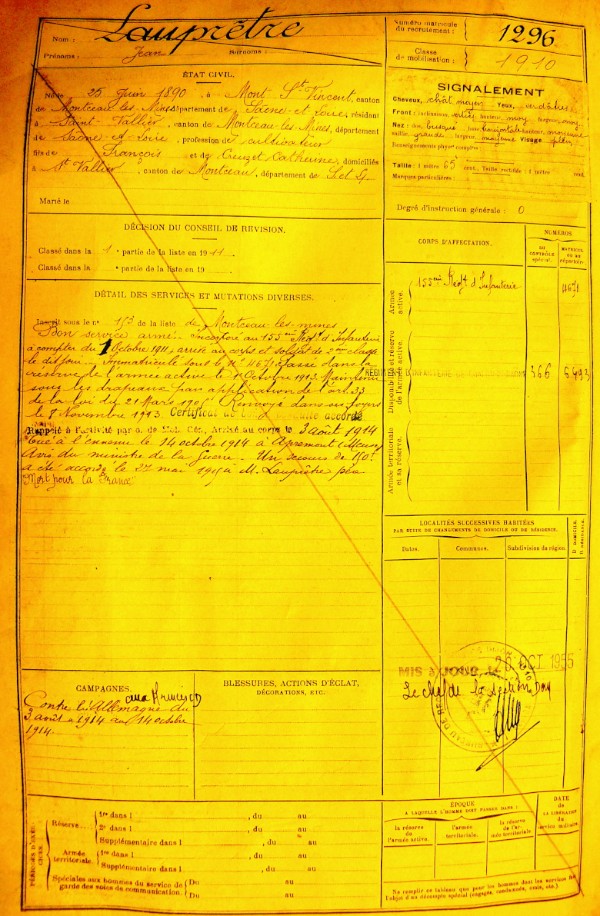 Nom : Lauprêtre
Prénoms : Jean Surnoms :
Numéro matricule du recrutement : 1296
Classe de mobilisation : 1910
ÉTAT CIVIL.
Né le 25 Juin 1890, à Mont St Vincent, canton
de Montceau-les-Mines, département de Saône-et-Loire, résidant
à Saint Vallier, canton de Montceau-les-Mines, département
de Saône et Loire, profession de cultivateur
fils de François et de Creuzet Catherine, domiciliés
à St Vallier, canton de Montceau, département de S et L.
Marié le
SIGNALEMENT
Cheveux chât moyen Yeux
Front : inclinaison hauteur moy
Nez : dos busqué base horizontale hauteur
saillie grande largeur moyenne Visage
Renseignements physion complém
Taille : 1 mètre 65 cent. Taille rectifiée : 1 mètre cent.
Marques particulières :
Degré d'instruction générale : 0
DÉCISION DU CONSEIL DE REVISION.
Classé dans la 1 e partie de la liste en 1911.
Classé dans la e partie de la liste en 19
DÉTAIL DES SERVICES ET MUTATIONS DIVERSES.
Inscrit sous le n° de la liste de Montceau les mines
Bon service armé. Incorporé au Régt d'Infanterie
à compter du 1 Octobre 1911, arrivé au corps et soldat de 2me classe
le dit jour. Immatriculé sous le N° 4671. Passé dans la
réserve de l'armée active le Octobre 1913. Maintenu
sous les drapeaux par application de l'art. 33
de la loi du 21 Mars 1905. Renvoyé dans ses foyers
le 8 Novembre 1913. Certificat de accordé
Rappelé à l'activité par o. de Mob. Gée. Arrivé au corps le 3 août 1914
Tué à l'ennemi le 14 octobre 1914 à Apremont (Meuse)
Avis du ministre de la Guerre. Un secours de 150f
a été accordé le 27 mai 1915 à M. Lauprêtre père
Mort pour la France
CORPS D'AFFECTATION.
NUMÉROS
AU CONTRÔLE SPÉCIAL.
MATRICULE OU AU RÉPERTOIRE
Armée active.
Régt d'Infanterie 4671
Disponibilité et réserve de l'armée active.
RÉGIMENT D'INFANTERIE 366
Armée territoriale et sa réserve.
LOCALITÉS SUCCESSIVES HABITÉES
PAR SUITE DE CHANGEMENTS DE DOMICILE OU DE RÉSIDENCE.
Dates. Communes. Subdivision de région. D. domicile. R. résidence.
MIS à JOUR, LE 26 OCT 1955
Le chef de la
CAMPAGNES.
aux Armées
Contre l'Allemagne du
3 août 1914 au 14 octobre
1914.
BLESSURES, ACTIONS D'ÉCLAT,
DÉCORATIONS, ETC.
PÉRIODES D'EXERCICES.
Réserve
1re dans l , du au
2e dans l , du au
Supplémentaire dans l , du au
Armée territoriale.
1re dans l , du au
Supplémentaire dans l , du au
Spéciales aux hommes du service de garde des voies de communication.
Du au
Du au
ÉPOQUE
À LAQUELLE L'HOMME DOIT PASSER DANS :
la réserve de l'armée active.
l'armée territoriale.
la réserve de l'armée territoriale.
DATE
DE LA LIBÉRATION DU service militaire.
Ne remplir ce tableau que pour les hommes dont les services ont fait l'objet d'un décompte spécial (engagés, condamnés, omis, etc.).